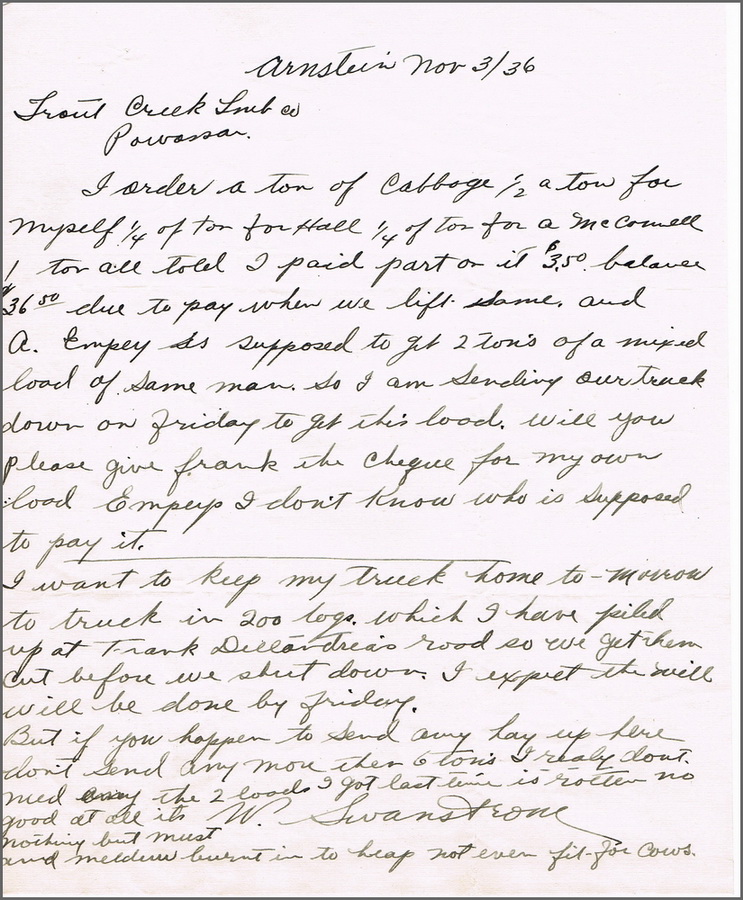 Arnstein Nov 3/36
Trout Creek Lmb co
Powassan.
I order a ton of Cabbage 1/2 a ton for
myself 1/4 of ton for Hall 1/4 of ton for a McConnell
1 ton all told I paid part on it $3.50 balance
$36 50 due to pay when we lift same. and
A. Empey is supposed to get 2 tons of a mixed
load of same man. so I am sending our truck
down on friday to get this load. will you
please give frank the cheque for my own
load Empeys I don't know who is supposed
to pay it.
I want to keep my truck home to-morrow
to truck in 200 logs. which I have piled
up at Frank Dellandrea's road so we get them
cut before we shut down. I expect the mill
will be done by friday.
But if you happen to send any hay up here
don't send any more then 6 tons I realy dont.
need any the 2 loads I got last time is rotten no
good at all its W. Swanstrone
nothing but must
and meldew burnt in to heap not even fit for cows.